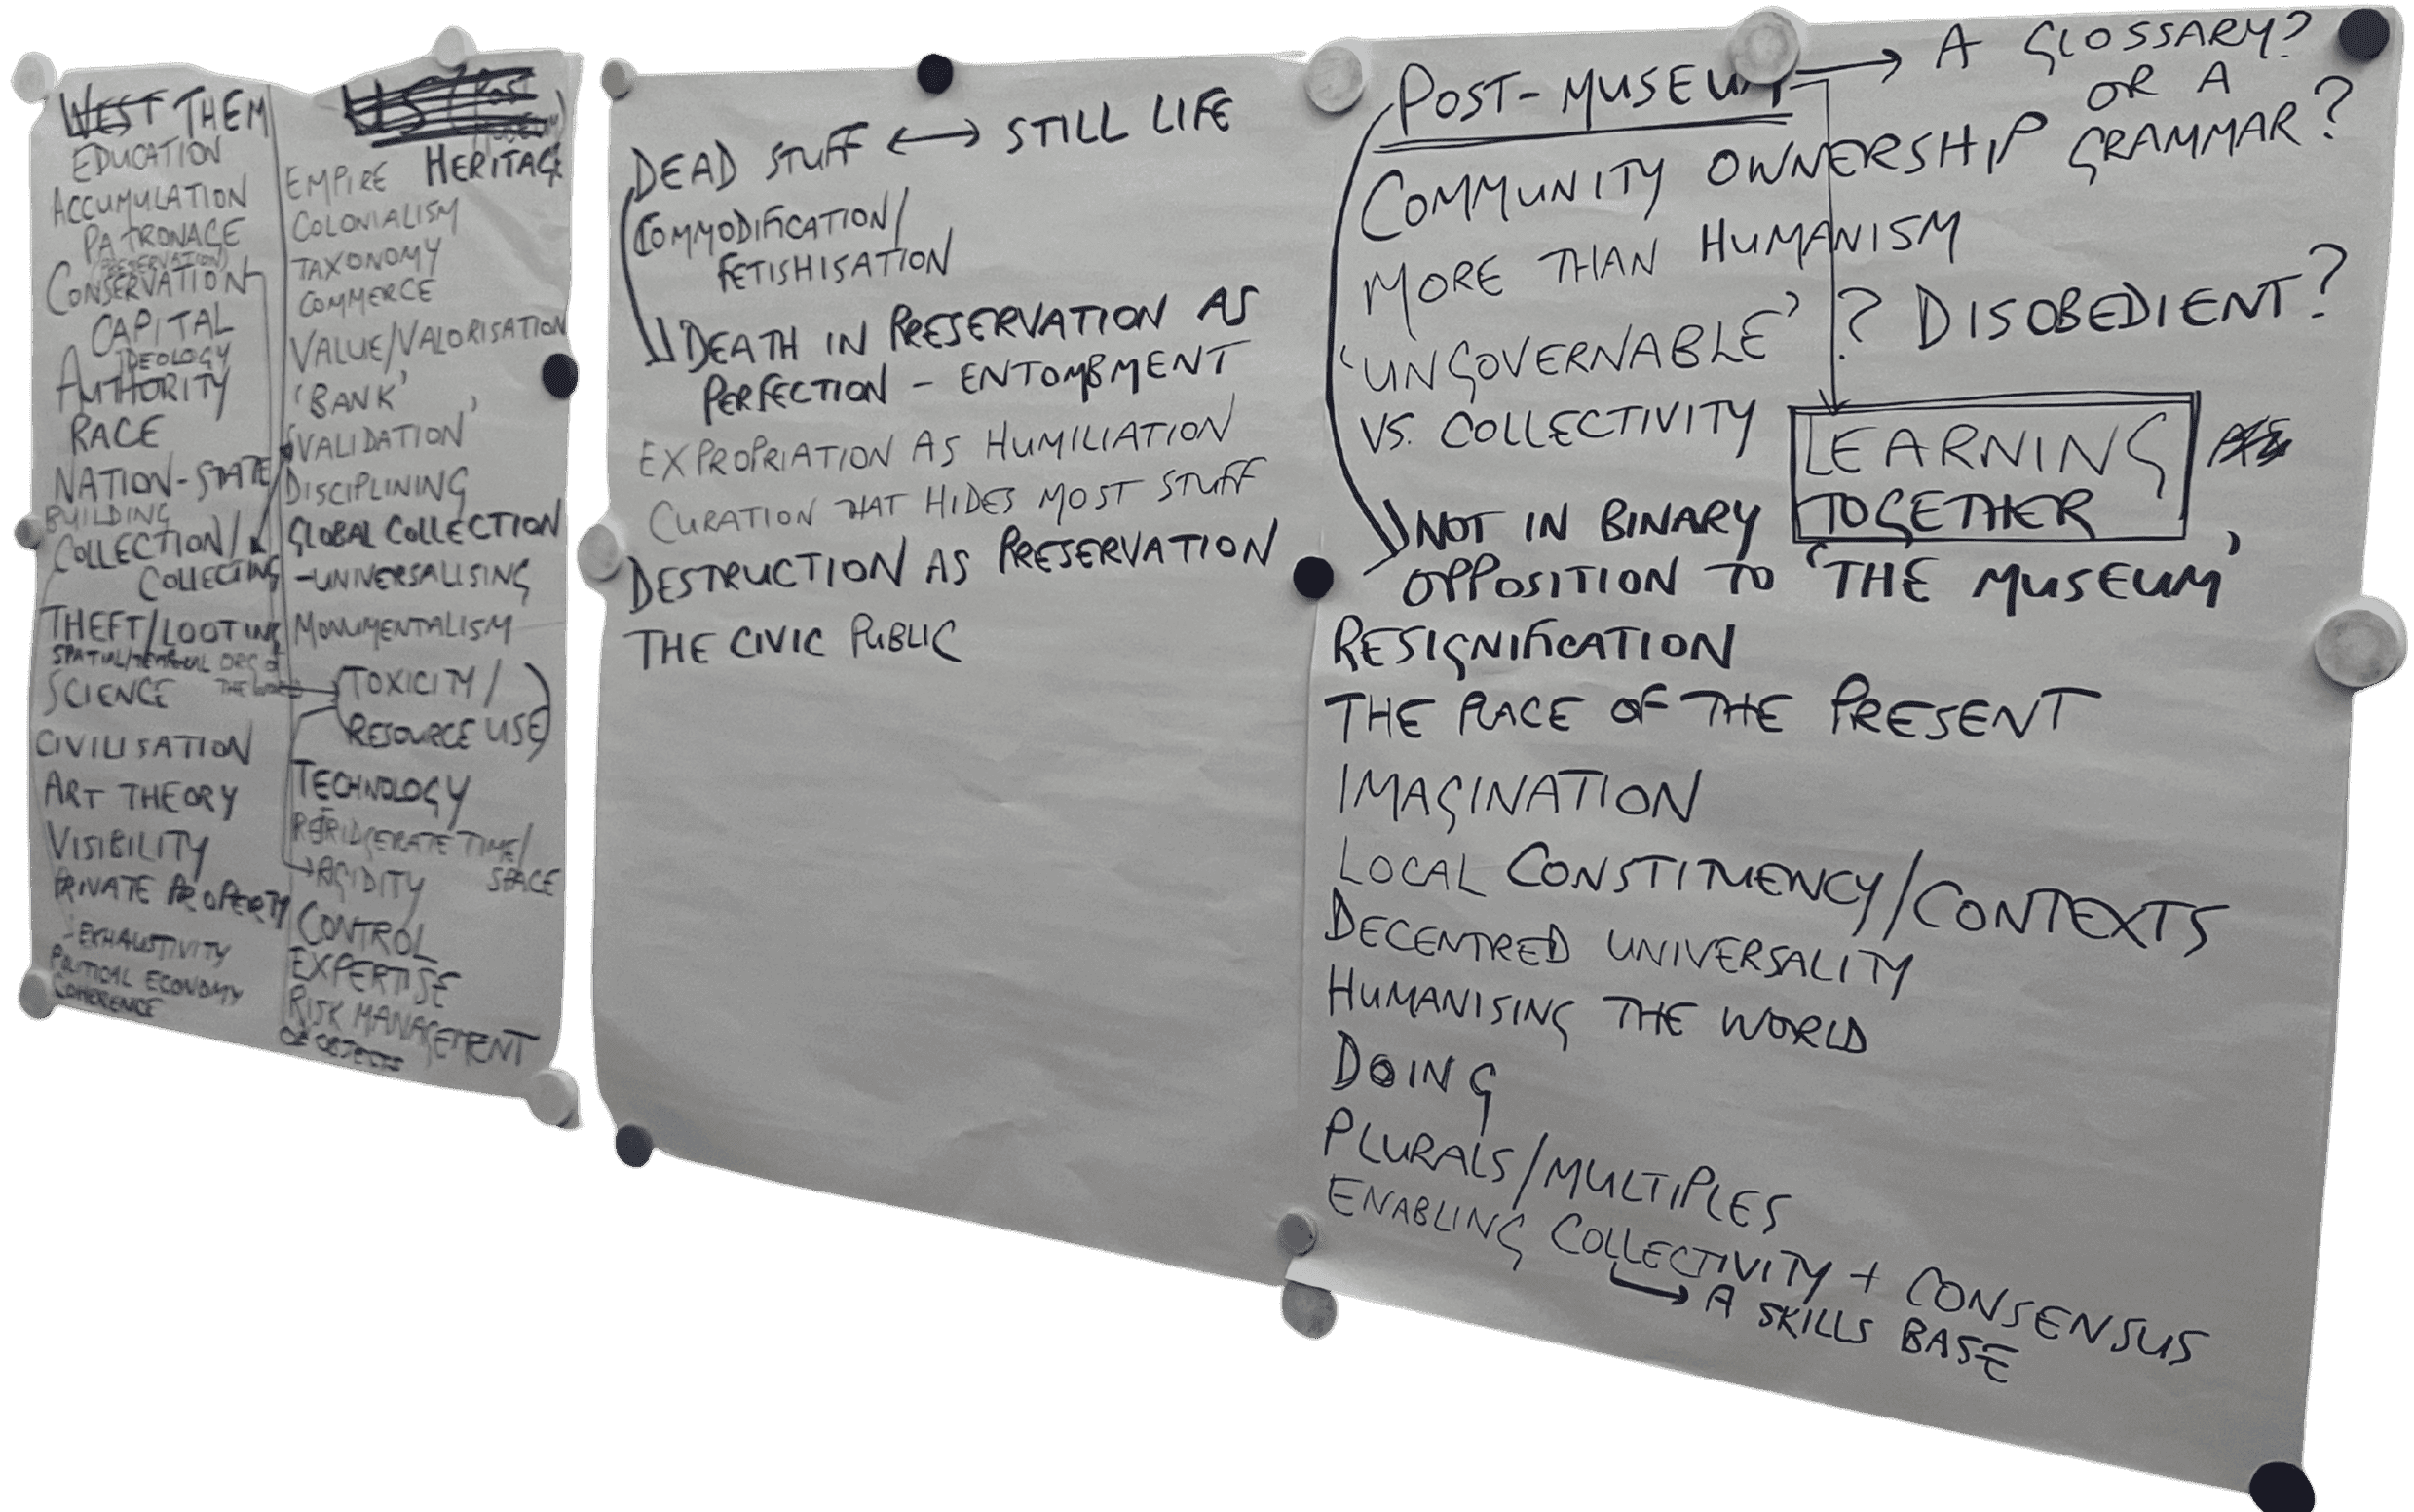 WEST THEM
EDUCATION
ACCUMULATION
PATRONAGE
(PRESERVATION)
CONSERVATION
CAPITAL
IDEOLOGY
AUTHORITY
RACE
NATION-STATE
BUILDING
COLLECTION/
COLLECTING
THEFT/LOOTING
SPATIAL/TEMPORAL ORG OF
THE WORLD
SCIENCE
CIVILISATION
ART THEORY
VISIBILITY
PRIVATE PROPERTY
-EXHAUSTIVITY
POLITICAL ECONOMY
COHERENCE
HERITAGE
EMPIRE
COLONIALISM
TAXONOMY
COMMERCE
VALUE/VALORISATION
'BANK'
'VALIDATION'
DISCIPLINING
GLOBAL COLLECTION
-UNIVERSALISING
MONUMENTALISM
(TOXICITY/
RESOURCE USE)
TECHNOLOGY
REFRIDGERATE TIME/
SPACE
RIGIDITY
CONTROL
EXPERTISE
RISK MANAGEMENT
OF OBJECTS
DEAD STUFF ↔ STILL LIFE
COMMODIFICATION/
FETISHISATION
DEATH IN PRESERVATION AS
PERFECTION - ENTOMBMENT
EXPROPRIATION AS HUMILIATION
CURATION THAT HIDES MOST STUFF
DESTRUCTION AS PRESERVATION
THE CIVIC PUBLIC
POST-MUSEUM → A GLOSSARY?
OR A
GRAMMAR?
COMMUNITY OWNERSHIP
MORE THAN HUMANISM
'UNGOVERNABLE' ? DISOBEDIENT?
VS. COLLECTIVITY
LEARNING
TOGETHER
NOT IN BINARY
OPPOSITION TO 'THE MUSEUM'
RESIGNIFICATION
THE PLACE OF THE PRESENT
IMAGINATION
LOCAL CONSTITUENCY/CONTEXTS
DECENTRED UNIVERSALITY
HUMANISING THE WORLD
DOING
PLURALS/MULTIPLES
ENABLING COLLECTIVITY + CONSENSUS
→ A SKILLS BASE